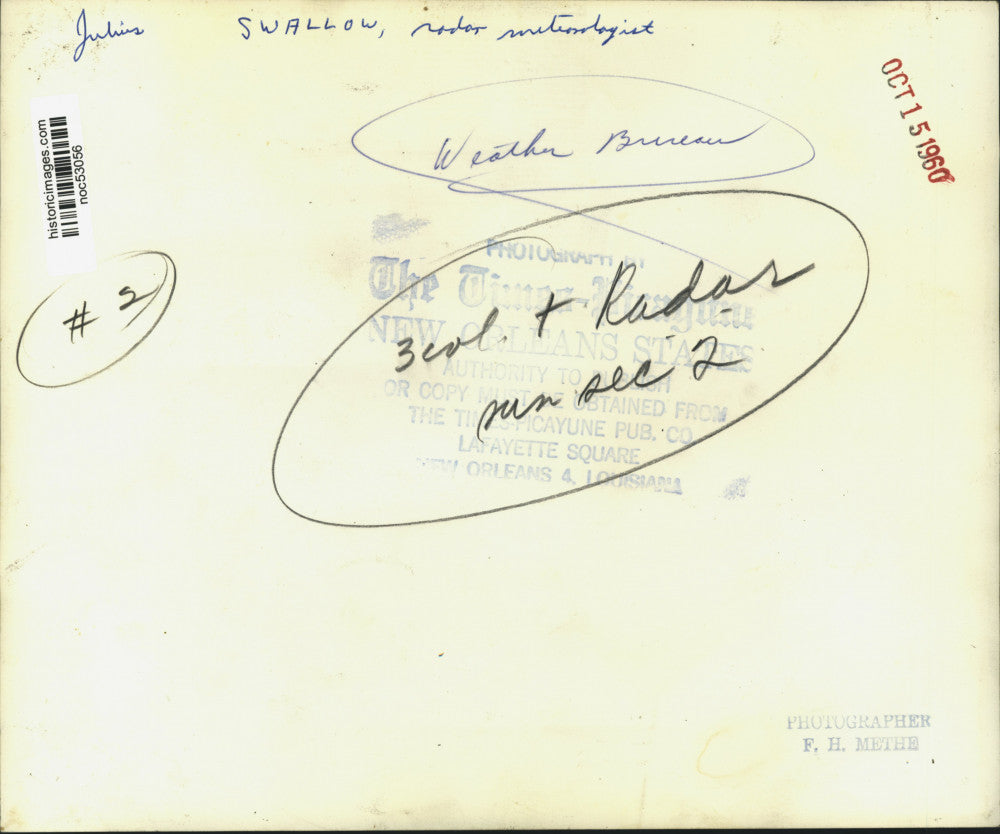 Julius SWALLOW, radar meteorologist
OCT 15 1960
Weather Bureau
historicimages.com
noc53056
# 2
PHOTOGRAPH BY
The Times-Picayune
NEW ORLEANS STATES
AUTHORITY TO PUBLISH
OR COPY MUST BE OBTAINED FROM
THE TIMES-PICAYUNE PUB. CO.
LAFAYETTE SQUARE
NEW ORLEANS 4, LOUISIANA
3 col. + Radar
run sec 2
PHOTOGRAPHER
F. H. METHE